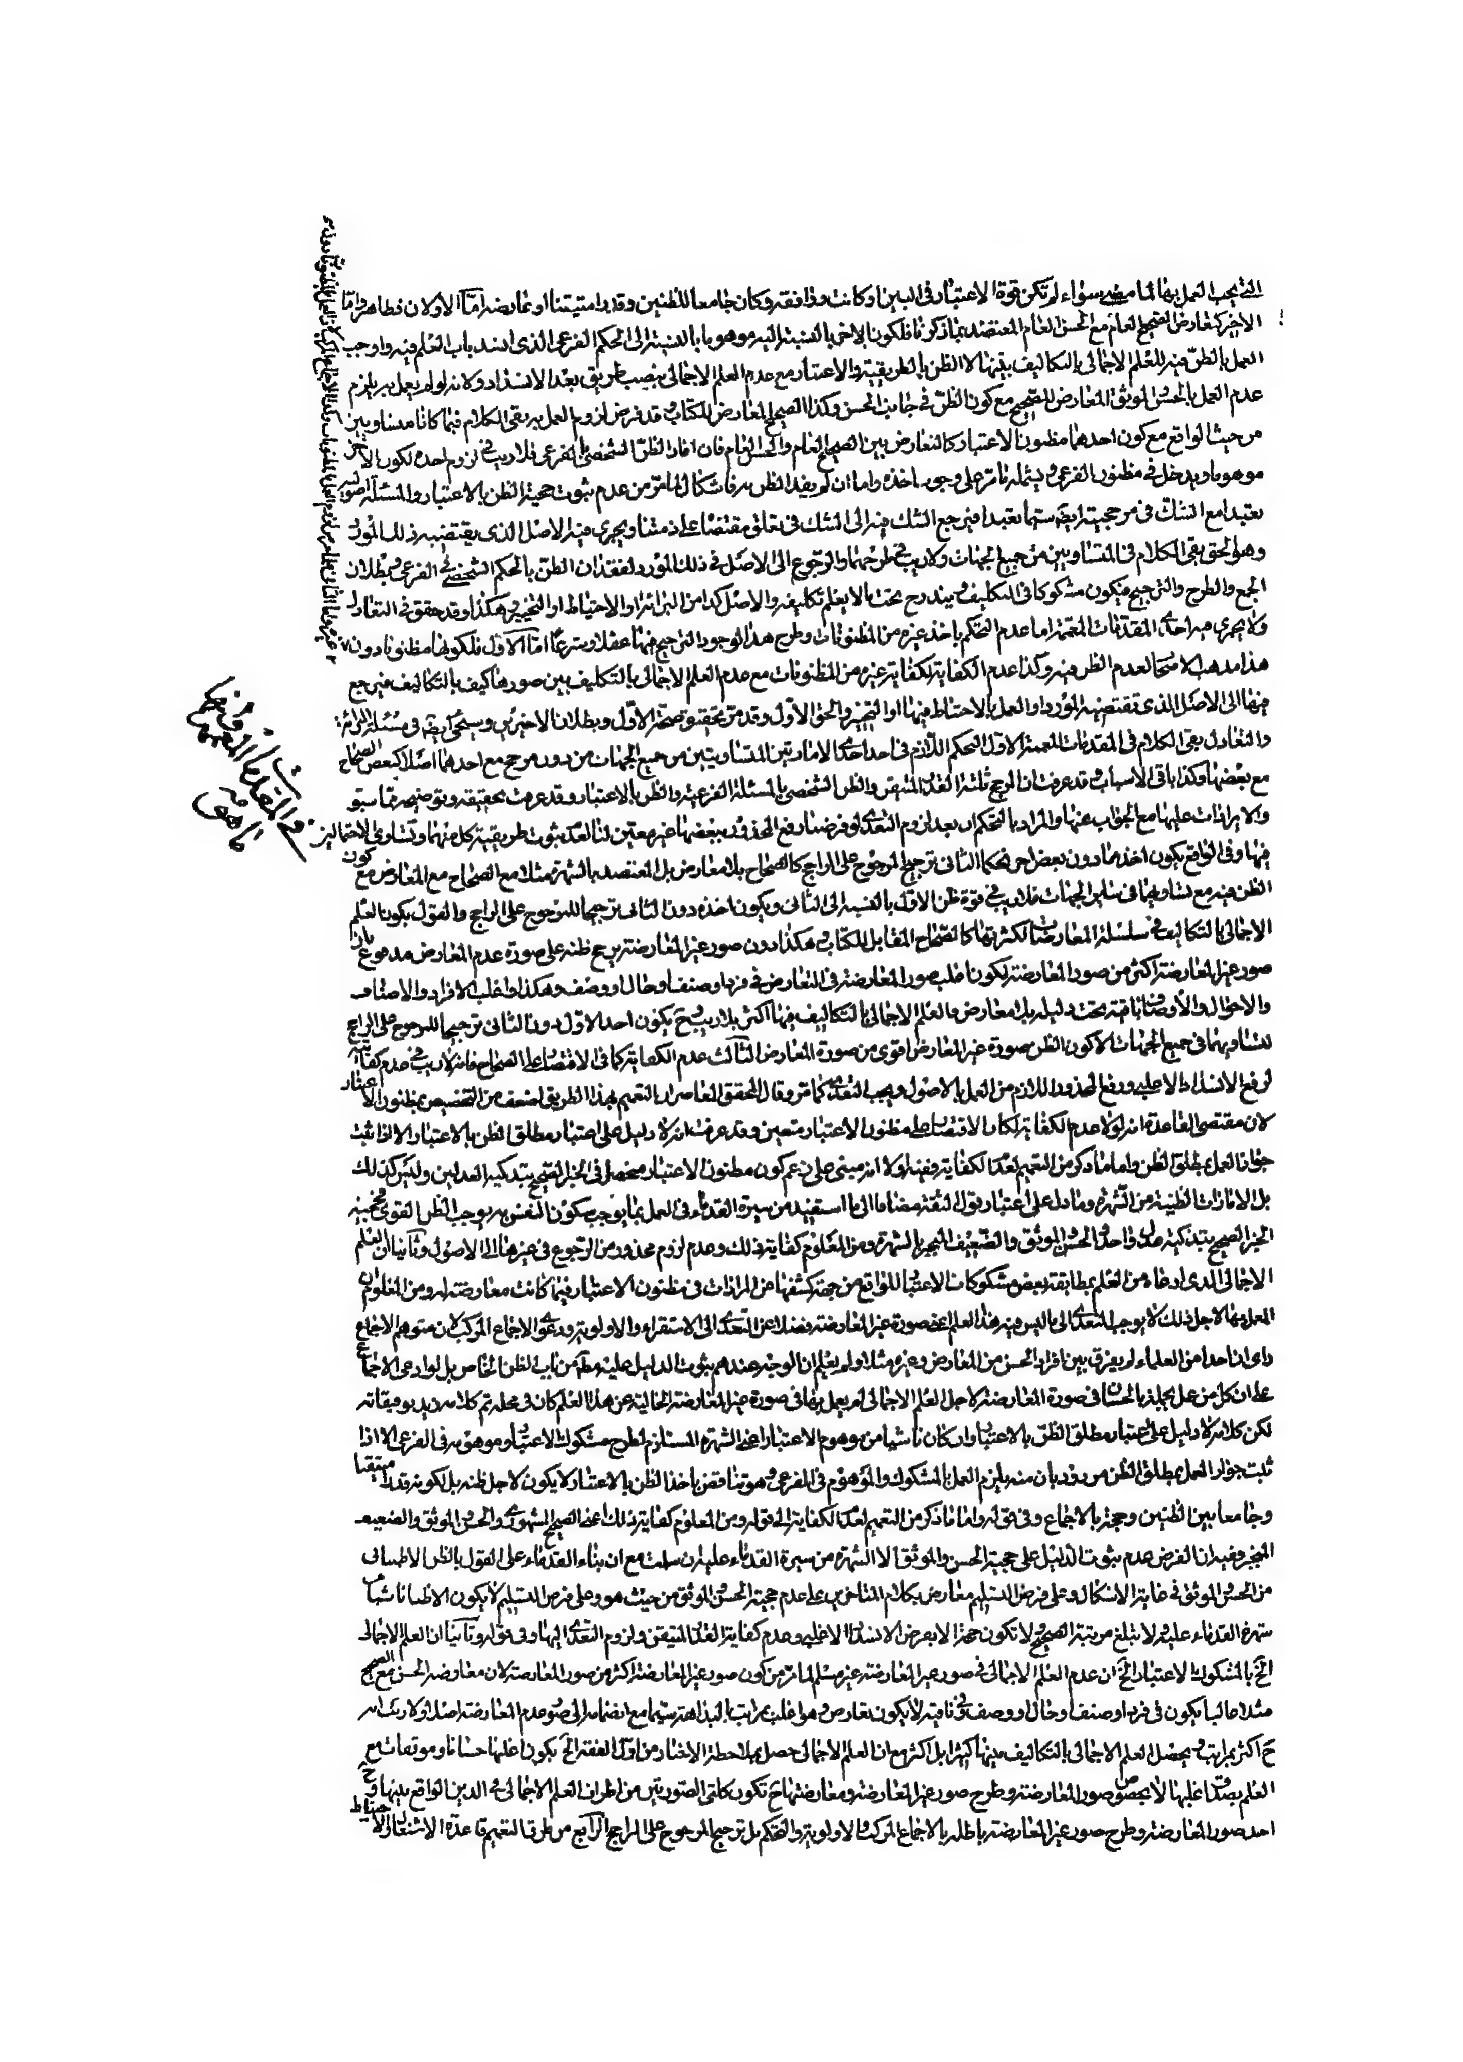 التي يجب العمل بها لما مر سواء لم تكن قوة الاعتبار في البين او كانت وذا فقه وكان جامعا للظنين وقدرا متيقنا او عارضه اما الاولان فظاهر واما
الاخير كتعارض الصحيح العام مع الحسن العام المعتضد بما ذكرنا فلكون الاخر بالنسبة اليه موهوما بالنسبة الى الحكم الفرعي الذي انسد باب العلم فيه واوجب
العمل بالظن فيه للعلم الاجمالي بالتكاليف الا الظن بالطريقية والاعتبار مع عدم العلم الاجمالي بنصب طريق بعد الانسداد ولانه لو لم يعمل به يلزم
عدم العمل بالحسن الموثق المعارض للصحيح مع كون الظن في جانب الحسن وكذا الصحيح المعارض للكتاب وقد فرض لزوم العمل به بقي الكلام فيما كانا متساويين
من حيث الواقع مع كون احدهما مظنون الاعتبار كالتعارض بين الصحيح العام والحسن العام فان افاد الظن الشخصي بالفرعي فلا ريب في لزوم اخذه لكون الاخر
موهوما ويدخل في مظنون الفرعي ويشمله ما مر على وجوب اخذه واما ان لم يفد الظن به فاشكال لما مر من عدم ثبوت حجية الظن بالاعتبار والمسئلة اصولية
تعبدا مع الشك في مرجحيته ايضا سيما تعبدا فيرجع الشك فيه الى الشك في تعلق مقتضاه على ذمتنا ويجري فيه الاصل الذي يقتضيه ذلك المورد
وهو الحق بقي الكلام في المتساويين من جميع الجهات ولا ريب في طرحهما والرجوع الى الاصل في ذلك المورد لفقدان الظن بالحكم الشخصي الفرعي وبطلان
الجمع والطرح والترجيح فيكون مشكوكا في التكاليف ويندرج تحت ما لا يعلم تكليفه والاصل كذا من البرائة او الاحتياط او التخيير وهكذا وقد حقق في التعادل
ولا يجري فيه احدى المقدمات المعممة اما عدم التحكم باخذ غيره من المظنونات وطرح هذا لوجود الترجيح فيها عقلا وشرعا اما الاول فلكونها مظنونا دون
هذا مذهب الاصحاب لعدم الظن فيه وكذا عدم الكفاية لكفاية غيره من المظنونات مع عدم العلم الاجمالي بالتكليف بين صورها كيف بالتكاليف فيرجع
فيها الى الاصل الذي تقتضيه المورد او العمل بالاحتياط فيها او التخيير والحق الاول وقد مر تحقيق صحة الاول وبطلان الاخيرين وسيجئ ايضا في مسئلة البرائة
والتعادل بقي الكلام في المقدمات المعممة الاول التحكم اللازم في اخذ احدى الامارتين المتساويتين من جميع الجهات من دون مرجح مع احدهما اصلا كبعض الصحاح
مع بعضها وكذا باقي الاسباب وقد عرفت ان المرجح ثلثة القدر المتيقن والظن الشخصي بالمسئلة الفرعية والظن بالاعتبار وقد عرفت تحقيقه وتوضيحه مما سبق
والايرادات عليها مع الجواب عنها والمراد بالتحكم ان بعد لزوم التعدي لو فرضنا رفع المحذور ببعضها غير معين لنا لعدم ثبوت طريقية كل منهما وتساوي الاحتمالين
فيها وفي الواقع يكون اخذ ما دون بعض اخر تحكما الثاني ترجيح المرجوح على الراجح كالصحاح بلا معارض بل المعتضد بالشهرة مثلا مع الصحاح مع المعارض مع كون
الظن فيه مع تساويهما في سائر الجهات فلا ريب في قوة ظن الاول بالنسبة الى الثاني ويكون اخذه دون الثاني ترجيحا للمرجوح على الراجح والقول بكون العلم
الاجمالي بالتكاليف في سلسلة المعارضات لكثرتها كالصحاح المقابل للكتاب وهكذا دون صور غير المعارضة يرجح ظنه على صورة عدم المعارض مدفوع بان
صور غير المعارضة اكثر من صور المعارضة لكون اغلب صور المعارضة في التعارض في فرد وصنف وحال او وصف وهكذا واغلب الافراد والاصناف
والاحوال والاوصاف باقية تحت دليله بلا معارض والعلم الاجمالي بالتكاليف فيها اكثر بلا ريب وح يكون اخذ الاول دون الثاني ترجيحا للمرجوح على الراجح
لتساويهما في جميع الجهات الا كون الظن بصورة غير المعارض اقوى من صورة المعارض الثالث عدم الكفاية كما في الاقتصار على الصحاح فانه لا ريب في عدم كفايته
لرفع الانسداد الاغلبي ورفع المحذور اللازم من العمل بالاصول ويجب التعدي كما مر وقال المحقق المعاصر ان التعميم بهذا الطريق اضعف من التخصيص بمظنون الاعتبار
لان مقتضى القاعدة انه لولا عدم الكفاية لكان الاقتصار على مظنون الاعتبار متعين وقد عرفت انه لا دليل على اعتبار مطلق الظن بالاعتبار الا اذا ثبت
جواز العمل بمطلق الظن واما ما ذكر من التعميم لعدم الكفاية ففيه اولا انه مبني على زعم كون مظنون الاعتبار منحصرا في الخبر الصحيح بتذكية العدلين وليس كذلك
بل الامارات الظنية من الشهرة وما دل على اعتبار قول الثقة مضافا الى ما استفيد من سيرة القدماء في العمل بما يوجب سكون النفس به يوجب الظن القوي بحجية
الخبر الصحيح بتذكية عدل واحد والحسن والموثق والضعيف المنجبر بالشهرة ومن المعلوم كفاية ذلك وعدم لزوم محذور من الرجوع في غيرها الى الاصول وثانيا ان العلم
الاجمالي الذي ادعاه من العلم بمطابقة بعض مشكوكات الاعتبار للواقع من جهة كشفها عن المرادات في مظنون الاعتبار فيما كانت معارضته له ومن المعلوم ان
العمل بها لاجل ذلك لا يوجب التعدي الى ما ليس فيه هذا العلم اعني صورة غير المعارضة فضلا عن التعدي الى الاستقراء والاولوية ودعوى الاجماع المركب لان متوهم الاجماع
راى ان احدا من العلماء لم يفرق بين افراد الحسن من المعارض وغيره مثلا ولم يعلم ان الوجه عندهم ثبوت الدليل عليه مطلقا من باب الظن الخاص بل لو ادعى الاجماع
على ان كل من عمل بجملة بالحسان في صورة المعارضة لاجل العلم الاجمالي لم يعمل بها في صورة غير المعارضة الخالية عن هذا العلم كان في محله تم كلامه زيد توفيقاته
لكن كلامه لا دليل على اعتبار مطلق الظن بالاعتبار وان كان ناشيا من موهوم الاعتبار اعني الشهرة المستلزم لطرح مشكوك الاعتبار وموهومه في الفرعي الا اذا
ثبت جواز العمل بمطلق الظن مردود بان منه يلزم العمل بالمشكوك والموهوم في الفرعي وهو تناقض باخذ الظن بالاعتبار لا يكون لاجل ظنه بل لكونه قدرا متيقنا
وجامعا بين الظنين وحجة بالاجماع وفي قوله واما ما ذكر من التعميم لعدم الكفاية الى قوله ومن المعلوم كفاية ذلك اعني الصحيح المشهوري والحسن والموثق والضعيف
المنجبر وفيه ان الفرض عدم ثبوت الدليل على حجية الحسن والموثق الا الشهرة من سيرة القدماء عليه ان سلمت مع ان بناء القدماء على القول بالظن الاطمينانى
من الحسن والموثق في غاية الاشكال وعلى فرض التسليم معارض بكلام المتاخرين على عدم حجية الحسن والموثق من حيث هو وعلى فرض التسليم لا يكون الاطمينان
شهرة القدماء عليه ولا تبلغ مرتبة الصحيح ولا تكون حجة الا بعرض الانسداد الاغلبي وعدم كفاية القدر المتيقن ولزوم التعدي اليها وفي قوله وثانيا ان العلم الاجمالي
الخ بالمشكوك الاعتبار الخ ان عدم العلم الاجمالي في صور غير المعارضة غير مسلم لما مر من كون صور غير المعارضة اكثر من صور المعارضة لان معارضة الحسن مع الصحيح
مثلا غالبا يكون في فرد او صنف او حال او وصف وفي باقيه لا يكون تعارض وهو اغلب بمراتب بالبداهة سيما مع انضمامه الى صور عدم المعارضة اصلا ولا ريب انه
ح اكثر بمراتب ويحصل العلم الاجمالي بالتكاليف فيها كثيرا بل اكثر مع ان العلم الاجمالي حصل بملاحظة الاخبار من اول الفقه الخ يكون اغلبها حسانا وموثقات مع
العلم بصدق اغلبها لا بخصوص صور المعارضة وطرح صور غير المعارضة ومعارضتها ح تكون كلتي الصورتين من اطراف العلم الاجمالي في الدين الواقع بينها وح
اخذ صور المعارضة وطرح صور غير المعارضة باطلة بالاجماع المركب والاولوية والتحكم بل ترجيح المرجوح على الراجح الرابع من طرق التعميم قاعدة الاشتغال والاحتياط
في المقدمات المعممة
ما هو